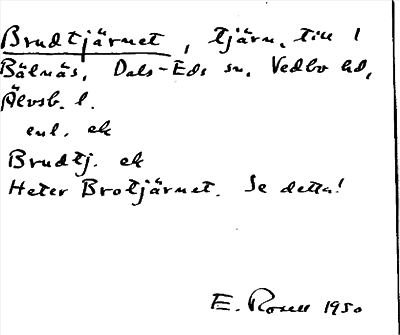 Brudtjärnet, tjärn, till 1
Bälnäs, Dals-Eds sn, Vedbo hd,
Älvsb. l.
enl. ek
Brudtj. ek
Heter Brotjärnet. Se detta!
E. Rosell 1950